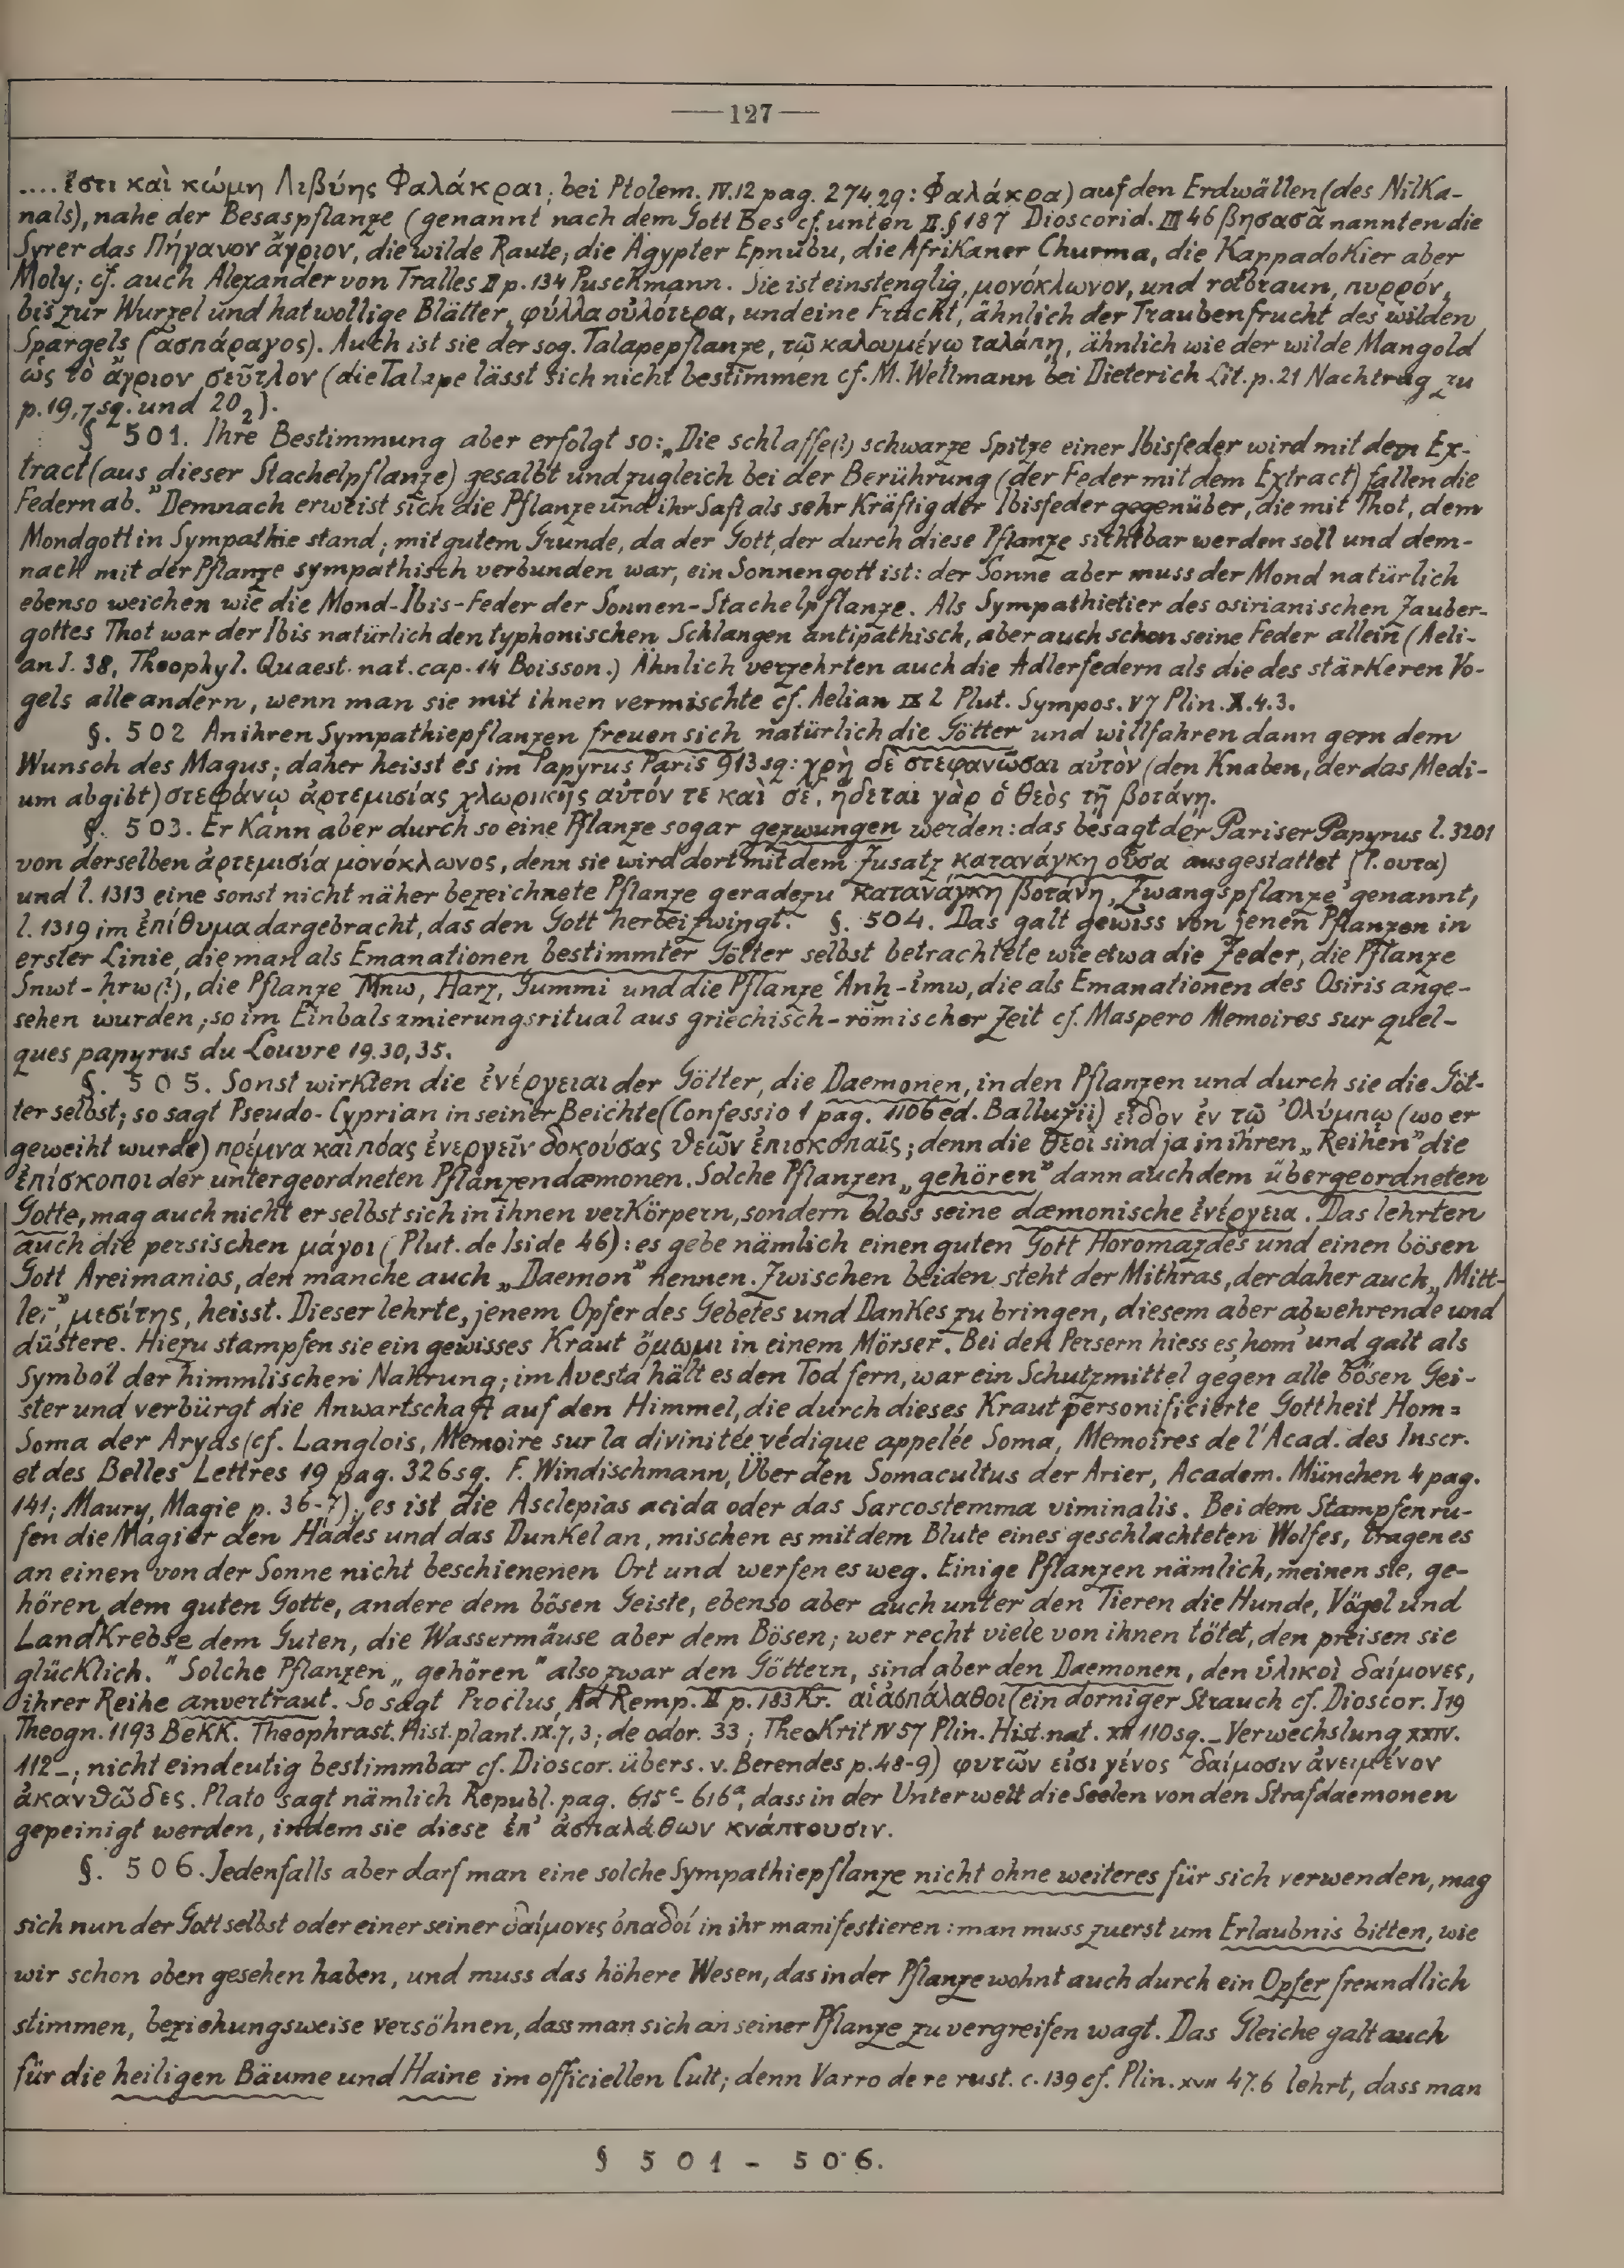 —127—
.... ἔστι καὶ κώμη Λιβύης Φαλάκραι; bei Ptolem. IV.12 pag. 274.29: Φαλάκρα) auf den Erdwällen (des NilKa-
nals), nahe der Besaspflanze (genannt nach dem Gott Bes cf. unten II.§187 Dioscorid. III 46 βησασᾶ nannten die
Syrer das Πήγανον ἄγριον, die wilde Raute, die Ägypter Epnubu, die Afrikaner Churma, die Kappadokier aber
Moly; cf. auch Alexander von Tralles II p. 134 Puschmann. Sie ist einstenglig, μονόκλωνον, und rotbraun, πυρρόν,
bis zur Wurzel und hat wollige Blätter, φύλλα οὐλότερα, und eine Frucht, ähnlich der Traubenfrucht des wilden
Spargels (ἀσπάραγος). Auch ist sie der sog. Talapepflanze, τῷ καλουμένῳ ταλάπῃ, ähnlich wie der wilde Mangold
ὡς τὸ ἄγριον σεῦτλον (die Talape lässt sich nicht bestimmen cf. M. Wellmann bei Dieterich Lit. p. 21 Nachtrag zu
p. 19,7 sq. und 20₂).
§ 501. Ihre Bestimmung aber erfolgt so: „Die schlaffe(?) schwarze Spitze einer Ibisfeder wird mit dem Ex-
tract (aus dieser Stachelpflanze) gesalbt und zugleich bei der Berührung (der Feder mit dem Extract) fallen die
Federn ab." Demnach erweist sich die Pflanze und ihr Saft als sehr kräftig der Ibisfeder gegenüber, die mit Thot, dem
Mondgott in Sympathie stand; mit gutem Grunde, da der Gott, der durch diese Pflanze sichtbar werden soll und dem-
nach mit der Pflanze sympathisch verbunden war, ein Sonnengott ist: der Sonne aber muss der Mond natürlich
ebenso weichen wie die Mond-Ibis-Feder der Sonnen-Stachelpflanze. Als Sympathietier des osirianischen Zauber-
gottes Thot war der Ibis natürlich den typhonischen Schlangen antipathisch, aber auch schon seine Feder allein (Aeli-
an I. 38, Theophyl. Quaest. nat. cap. 14 Boisson.) Ähnlich verzehrten auch die Adlerfedern als die des stärkeren Vo-
gels alle andern, wenn man sie mit ihnen vermischte cf. Aelian IX 2 Plut. Sympos. V7 Plin. X.4.3.
§. 502 An ihren Sympathiepflanzen freuen sich natürlich die Götter und willfahren dann gern dem
Wunsch des Magus; daher heisst es im Papyrus Paris 913 sq: χρὴ δὲ στεφανῶσαι αὐτὸν (den Knaben, der das Medi-
um abgibt) στεφάνῳ ἀρτεμισίας χλωρικῆς αὐτόν τε καὶ σέ, ἥδεται γὰρ ὁ θεὸς τῇ βοτάνῃ.
§. 503. Er kann aber durch so eine Pflanze sogar gezwungen werden: das besagt der Pariser Papyrus l. 3201
von derselben ἀρτεμισία μονόκλωνος, denn sie wird dort mit dem Zusatz κατανάγκη οὖσα ausgestattet (P. ουτα)
und l. 1313 eine sonst nicht näher bezeichnete Pflanze geradezu κατανάγκη βοτάνη, ‚Zwangspflanze' genannt,
l. 1319 im ἐπίθυμα dargebracht, das den Gott herbeizwingt. §. 504. Das galt gewiss von jenen Pflanzen in
erster Linie, die man als Emanationen bestimmter Götter selbst betrachtete wie etwa die Zeder, die Pflanze
Snwt-ḥrw(?), die Pflanze Mnw, Harz, Gummi und die Pflanze ʿAnḫ-imw, die als Emanationen des Osiris ange-
sehen wurden; so im Einbalsamierungsritual aus griechisch-römischer Zeit cf. Maspero Memoires sur quel-
ques papyrus du Louvre 19.30,35.
§. 505. Sonst wirkten die ἐνέργειαι der Götter, die Daemonen, in den Pflanzen und durch sie die Göt-
ter selbst; so sagt Pseudo-Cyprian in seiner Beichte (Confessio 1 pag. 1106 ed. Balluzii) εἶδον ἐν τῷ Ὀλύμπῳ (wo er
geweiht wurde) πρέμνα καὶ πόας ἐνεργεῖν δοκούσας θεῶν ἐπισκοπαῖς; denn die θεοὶ sind ja in ihren „Reihen" die
ἐπίσκοποι der untergeordneten Pflanzendæmonen. Solche Pflanzen „gehören" dann auch dem übergeordneten
Gotte, mag auch nicht er selbst sich in ihnen verkörpern, sondern bloss seine dæmonische ἐνέργεια. Das lehrten
auch die persischen μάγοι (Plut. de Iside 46): es gebe nämlich einen guten Gott Horomazdes und einen bösen
Gott Areimanios, den manche auch „Daemon" nennen. Zwischen beiden steht der Mithras, der daher auch „Mitt-
ler", μεσίτης, heisst. Dieser lehrte, jenem Opfer des Gebetes und Dankes zu bringen, diesem aber abwehrende und
düstere. Hiezu stampfen sie ein gewisses Kraut ὄμωμι in einem Mörser. Bei den Persern hiess es ‚hom' und galt als
Symbol der himmlischen Nahrung; im Avesta hält es den Tod fern, war ein Schutzmittel gegen alle bösen Gei-
ster und verbürgt die Anwartschaft auf den Himmel, die durch dieses Kraut personificierte Gottheit Hom =
Soma der Aryas (cf. Langlois, Memoire sur la divinitée védique appelée Soma, Memoires de l'Acad. des Inscr.
et des Belles Lettres 19 pag. 326 sg. F. Windischmann, Über den Somacultus der Arier, Academ. München 4 pag.
141; Maury, Magie p. 36-7); es ist die Asclepias acida oder das Sarcostemma viminalis. Bei dem Stampfen ru-
fen die Magier den Hades und das Dunkel an, mischen es mit dem Blute eines geschlachteten Wolfes, tragen es
an einen von der Sonne nicht beschienenen Ort und werfen es weg. Einige Pflanzen nämlich, meinen sie, ge-
hören dem guten Gotte, andere dem bösen Geiste, ebenso aber auch unter den Tieren die Hunde, Vögel und
Landkrebse dem Guten, die Wassermäuse aber dem Bösen; wer recht viele von ihnen tötet, den preisen sie
glücklich." Solche Pflanzen „gehören" also zwar den Göttern, sind aber den Daemonen, den ὑλικοὶ δαίμονες,
ihrer Reihe anvertraut. So sagt Proclus, Ad Remp. II p. 183 Kr. αἱ ἀσπάλαθοι (ein dorniger Strauch cf. Dioscor. I 19
Theogn. 1193 Bekk. Theophrast. Hist. plant. IX.7,3; de odor. 33; Theokrit IV 57 Plin. Hist. nat. XII 110 sq. _ Verwechslung XXIV.
112 _; nicht eindeutig bestimmbar cf. Dioscor. übers. v. Berendes p. 48-9) φυτῶν εἰσι γένος δαίμοσιν ἀνειμένον
ἀκανθῶδες. Plato sagt nämlich Republ. pag. 615ᶜ-616ᵃ, dass in der Unterwelt die Seelen von den Strafdaemonen
gepeinigt werden, indem sie diese ἐπ' ἀσπαλάθων κνάπτουσιν.
§. 506. Jedenfalls aber darf man eine solche Sympathiepflanze nicht ohne weiteres für sich verwenden, mag
sich nun der Gott selbst oder einer seiner δαίμονες ὀπαδοί in ihr manifestieren: man muss zuerst um Erlaubnis bitten, wie
wir schon oben gesehen haben, und muss das höhere Wesen, das in der Pflanze wohnt auch durch ein Opfer freundlich
stimmen, beziehungsweise versöhnen, dass man sich an seiner Pflanze zu vergreifen wagt. Das Gleiche galt auch
für die heiligen Bäume und Haine im officiellen Cult; denn Varro de re rust. c. 139 cf. Plin. XVII 47.6 lehrt, dass man
§ 501 - 506.